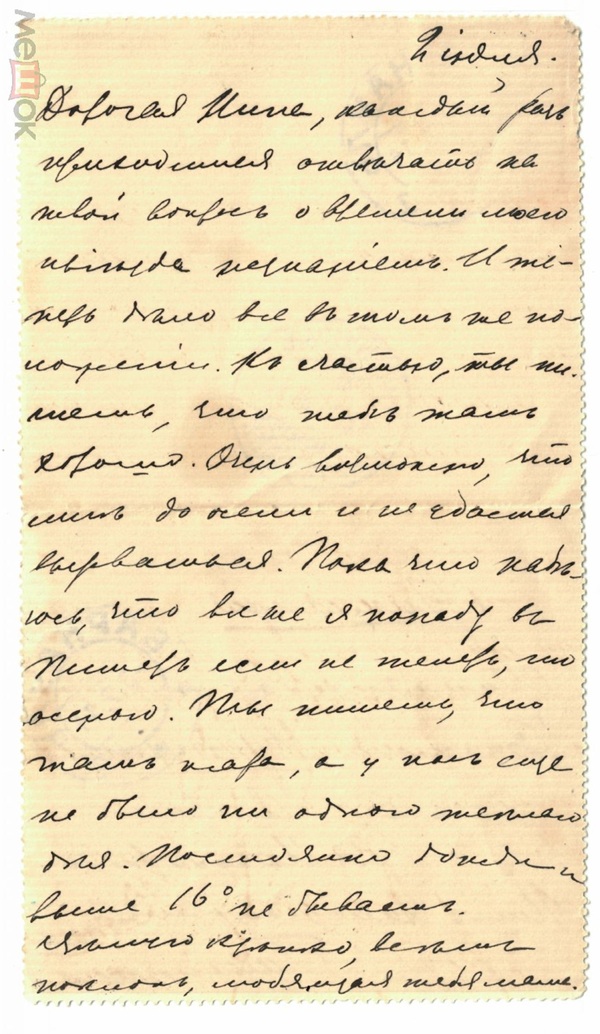 2 июля.
Дорогая Нина, каждый разъ
приходится отвѣчать на
твой вопросъ о времени моего
пріѣзда незнаніемъ. И те-
перь дѣло все въ томъ же по-
ложеніи. Къ счастью, ты пи-
шешь, что тебѣ тамъ
хорошо. Очень возможно, что
мнѣ до осени и не удастся
вырваться. Пока что надѣ-
юсь, что все же я попаду въ
Питеръ если не теперь, то
осенью. Ты пишешь, что
тамъ жара, а у насъ еще
не было ни одного теплаго
дня. Постоянно дожди и
выше 16° не бываетъ.
Цѣлую крѣпко, всѣмъ
поклонъ, любящая тебя мама.
meшок